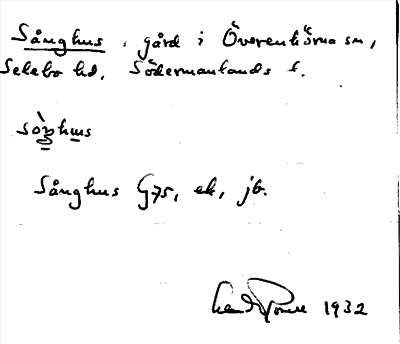 Sånghus, gård i Överenhörna sn,
Selebo hd, Södermanlands l.
Sånghus G75, ek, jb.
1932